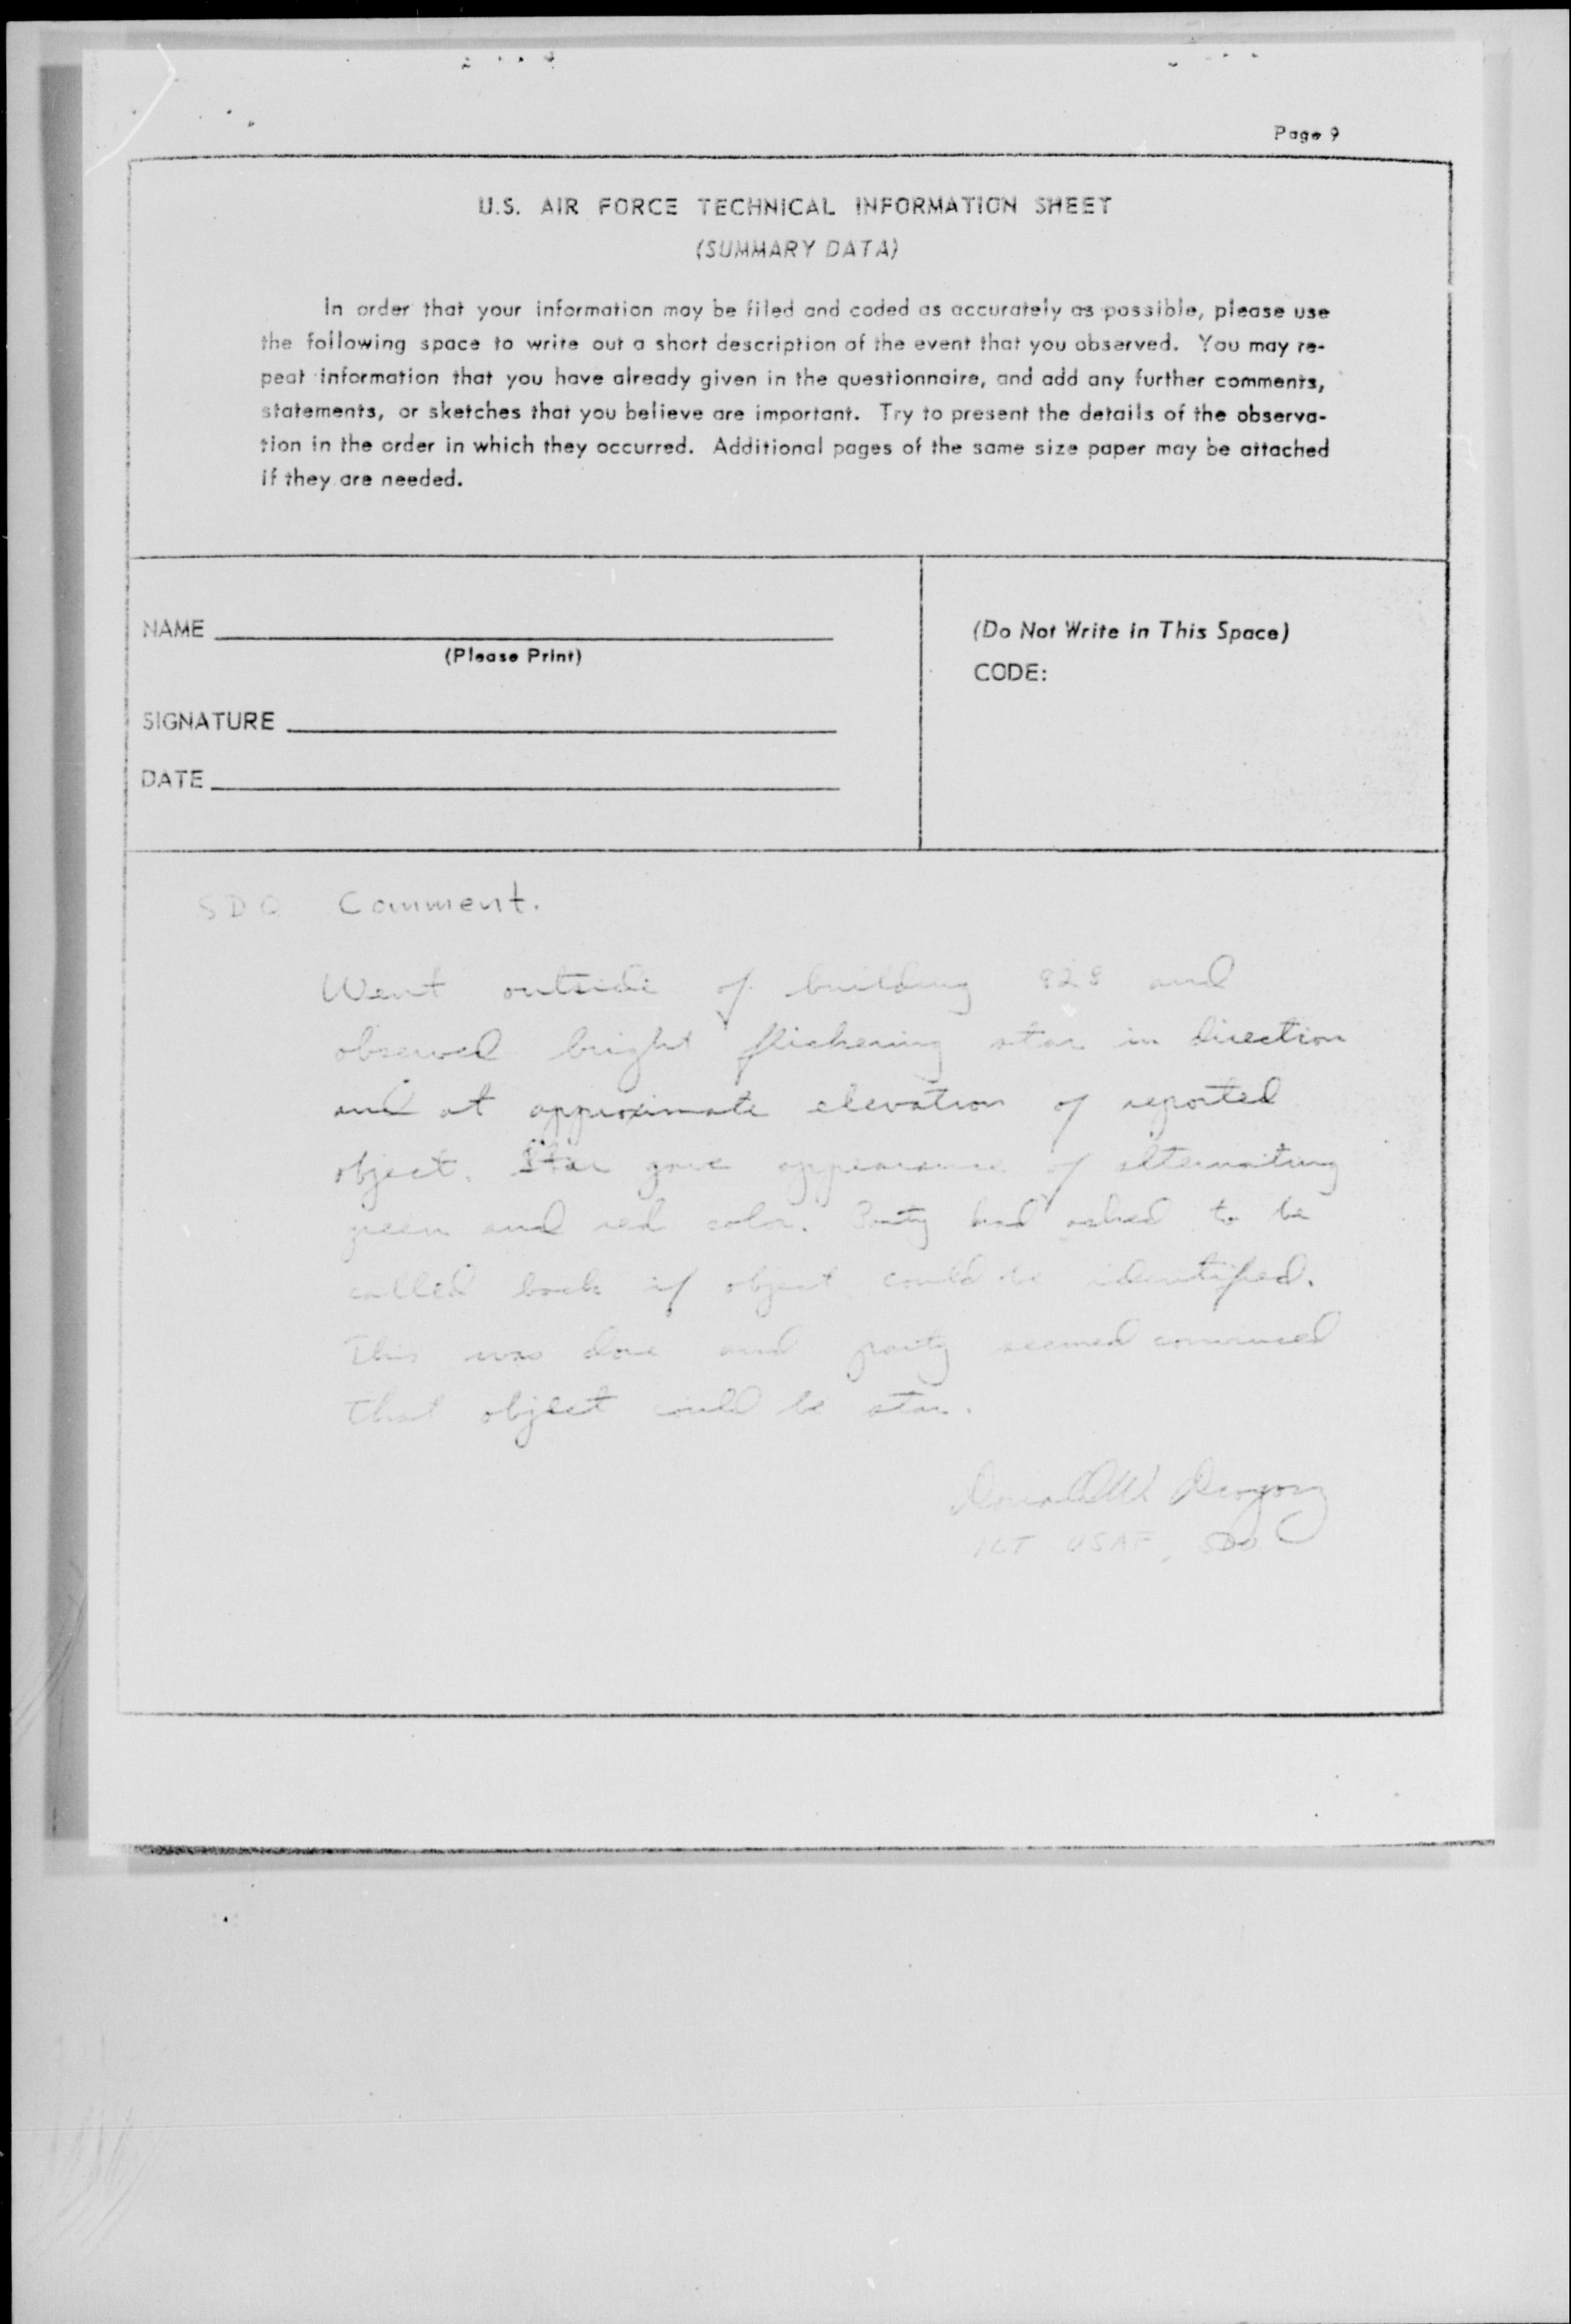 Page 9
U.S. AIR FORCE TECHNICAL INFORMATION SHEET
(SUMMARY DATA)
In order that your information may be filed and coded as accurately as possible, please use
the following space to write out a short description of the event that you observed. You may re-
peat information that you have already given in the questionnaire, and add any further comments,
statements, or sketches that you believe are important. Try to present the details of the observa-
tion in the order in which they occurred. Additional pages of the same size paper may be attached
if they are needed.
NAME
(Please Print)
SIGNATURE
DATE
(Do Not Write in This Space)
CODE:
SDO Comment.
Went outside of building 828 and
observed bright flickering star in direction
and at approximate elevation of reported
object. Star gave appearance of alternating
green and red color. Party had asked to be
called back if object could be identified.
This was done and party seemed convinced
that object could be star.
Donald W.
1LT USAF, SDO